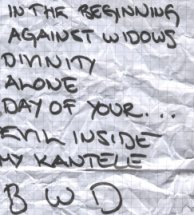 IN THE BEGINNING
AGAINST WIDOWS
DIVINITY
ALONE
DAY OF YOUR...
EVIL INSIDE
MY KANTELE
B W D